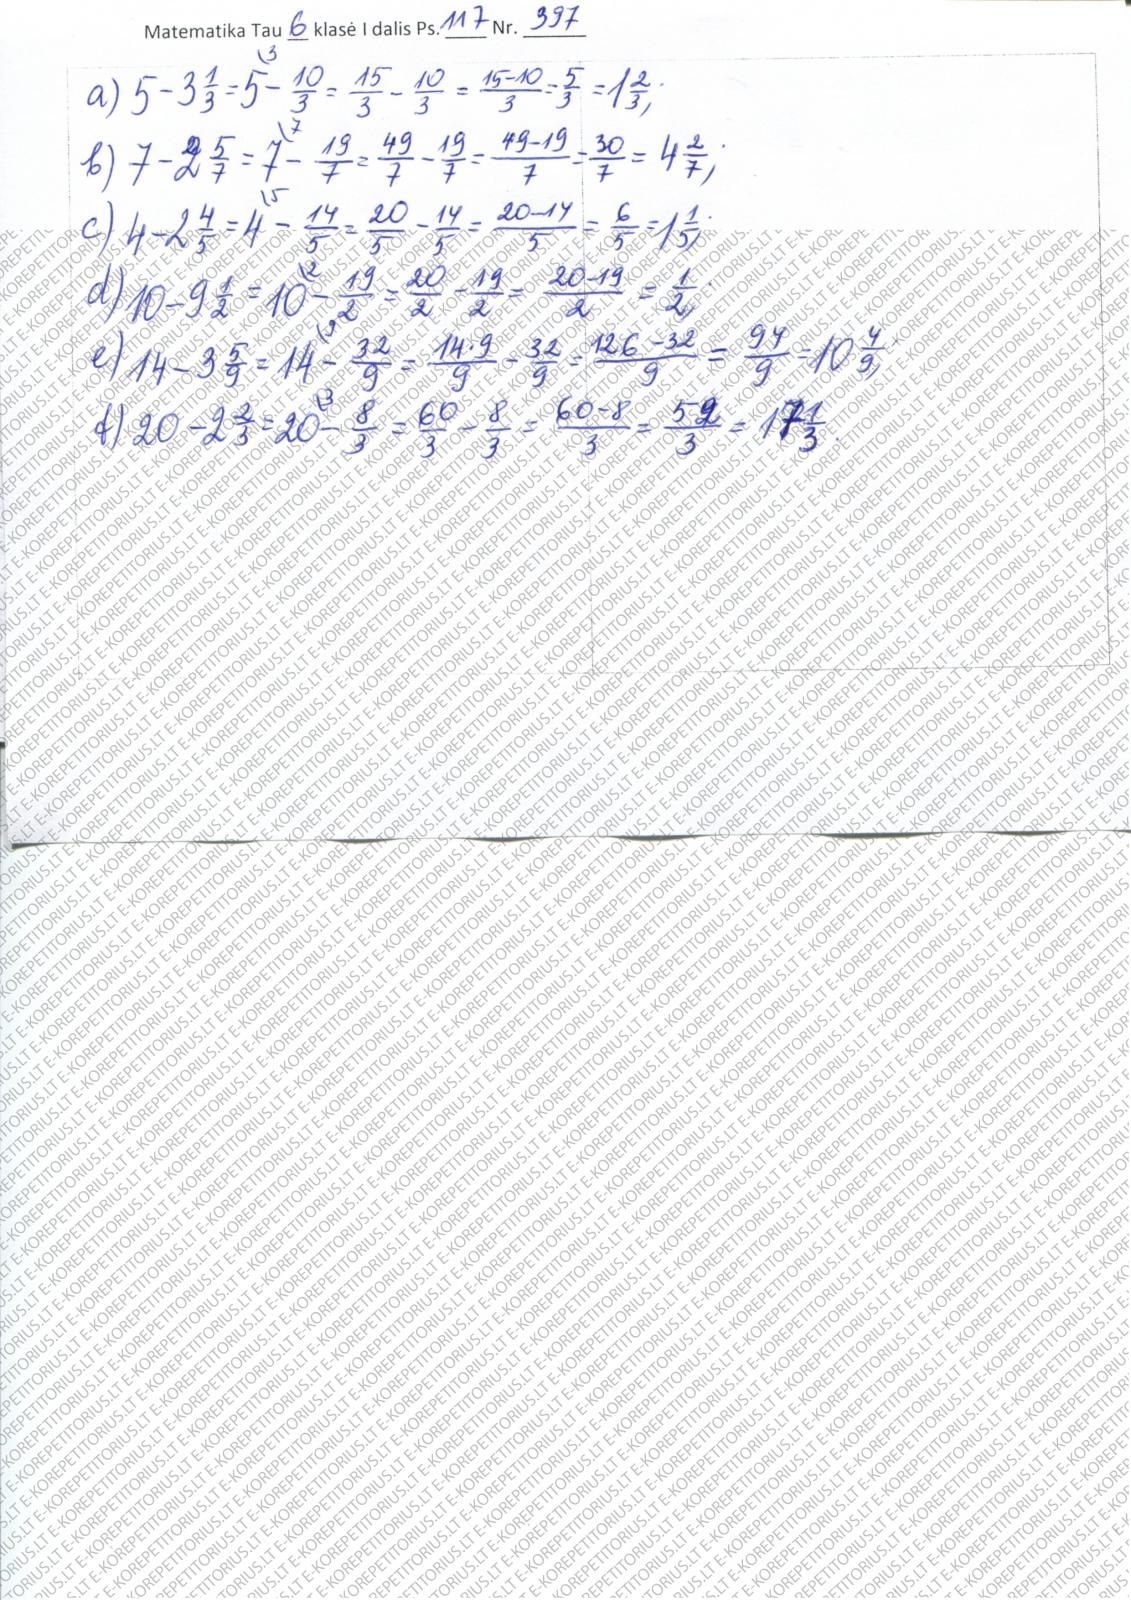 Matematika Tau 6 klasė I dalis Ps. 117 Nr. 397
a) 5 - 3 1/3 = 5 \3 - 10/3 = 15/3 - 10/3 = 15-10/3 = 5/3 = 1 2/3;
b) 7 - 2 5/7 = 7 \7 - 19/7 = 49/7 - 19/7 = 49-19/7 = 30/7 = 4 2/7;
c) 4 - 2 4/5 = 4 \5 - 14/5 = 20/5 - 14/5 = 20-14/5 = 6/5 = 1 1/5;
d) 10 - 9 1/2 = 10 \2 - 19/2 = 20/2 - 19/2 = 20-19/2 = 1/2;
e) 14 - 3 5/9 = 14 \9 - 32/9 = 14·9/9 - 32/9 = 126-32/9 = 94/9 = 10 4/9;
f) 20 - 2 2/3 = 20 \3 - 8/3 = 60/3 - 8/3 = 60-8/3 = 52/3 = 17 1/3.
E-KOREPETITORIUS.LT